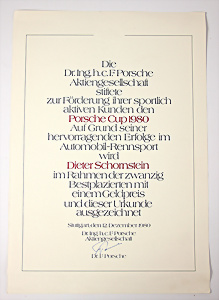 Die
Dr. Ing. h.c. F. Porsche
Aktiengesellschaft
stiftete
zur Förderung ihrer sportlich
aktiven Kunden den
Porsche Cup 1980
Auf Grund seiner
hervorragenden Erfolge im
Automobil-Rennsport
wird
Dieter Schornstein
im Rahmen der zwanzig
Bestplazierten mit
einem Geldpreis
und dieser Urkunde
ausgezeichnet
Stuttgart, den 12. Dezember 1980
Dr. Ing. h.c. F. Porsche
Aktiengesellschaft
Dr. F. Porsche